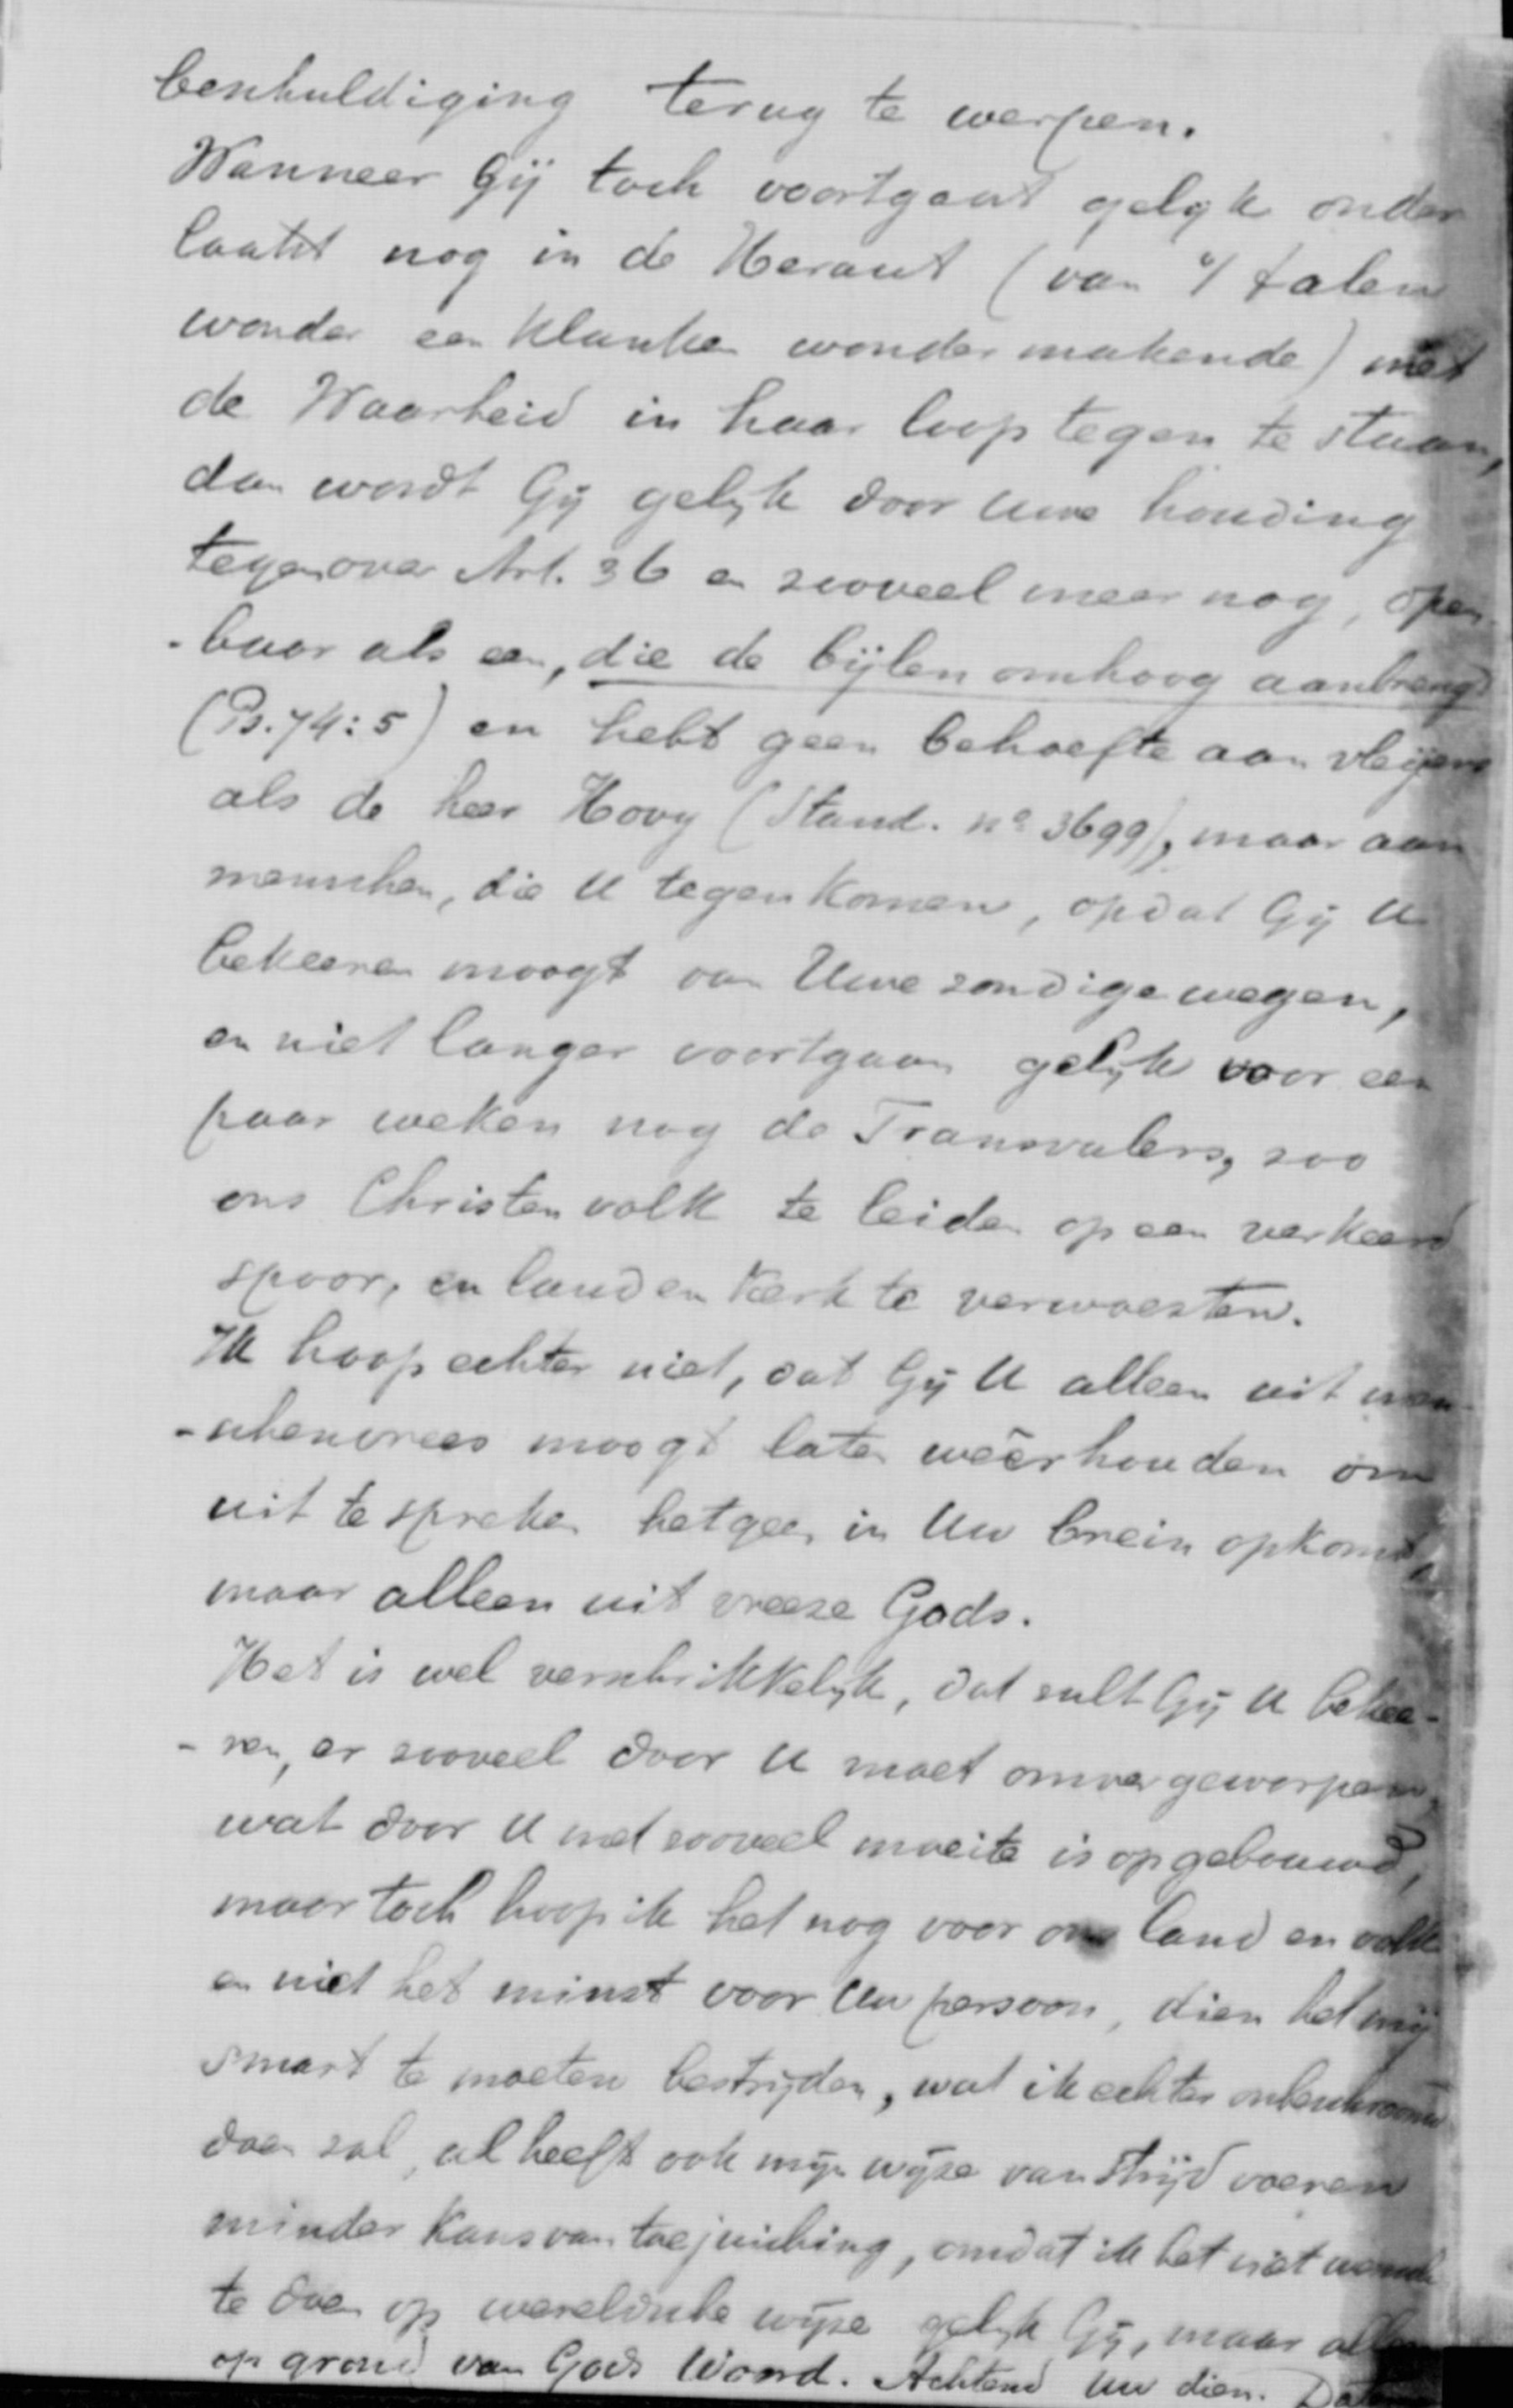 beschuldiging terug te werpen.
Wanneer Gij toch voortgaat gelijk onder
laatst nog in de Heraut (van 't talen
wonder een klanken wonder makende) met
de Waarheid in haar loop tegen te staan,
dan wordt Gij gelijk door Uwe houding
tegenover Art. 36 en zooveel meer nog, open
-baar als een, die de bijlen omhoog aanbrengt
(Ps. 74:5) en hebt geen behoefte aan vleijers
als de heer Hovy (Stand. no 3699), maar aan
menschen, die U tegen komen, opdat Gij U
bekeeren moogt van Uwe zondige wegen,
en niet langer voortgaan gelijk voor een
paar weken nog de Transvalers, zoo
ons Christen volk te leiden op een verkeerd
spoor, en land en Kerk te verwoesten.
Ik hoop echter niet, dat Gij U alleen uit men
-schenvrees moogt laten weêrhouden om
uit te spreken hetgeen in Uw brein opkomt,
maar alleen uit vreeze Gods.
Het is wel verschrikkelijk, dat zult Gij U bekee-
-ren, er zooveel door U moet omvergeworpen,
wat door U met zooveel moeite is opgebouwd,
maar toch hoop ik het nog voor ons land en volk
en niet het minst voor Uw persoon, dien het mij
smart te moeten bestrijden, wat ik echter onbeschroomd
doen zal, al heeft ook mijn wijze van strijd voeren
minder kans van toejuiching, omdat ik het niet wensch
te doen op wereldsche wijze gelijk Gij, maar alleen
op grond van Gods Woord. Achtend Uw dien.